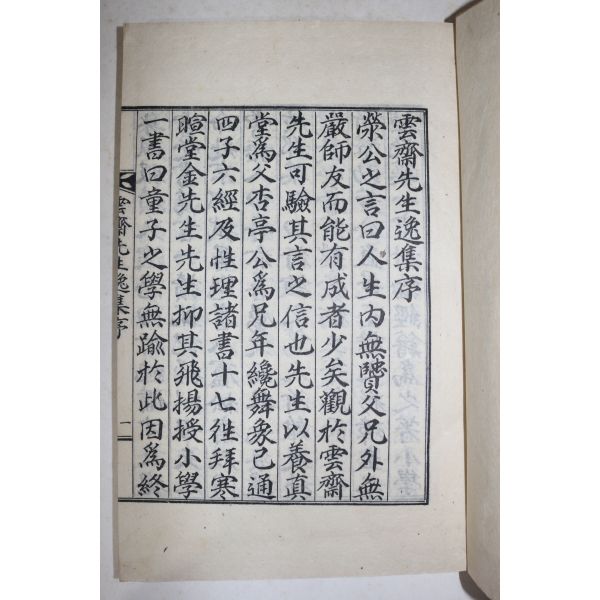 雲齋先生逸集序
滎公之言曰人生内無賢父兄外無
嚴師友而能有成者少矣觀於雲齋
先生可驗其言之信也先生以養真
堂爲父杏亭公爲兄年纔舞象已通
四子六經及性理諸書十七徃拜寒
暄堂金先生先生抑其飛揚授小學
一書曰童子之學無踰於此因爲終
雲齋先生逸集序
一